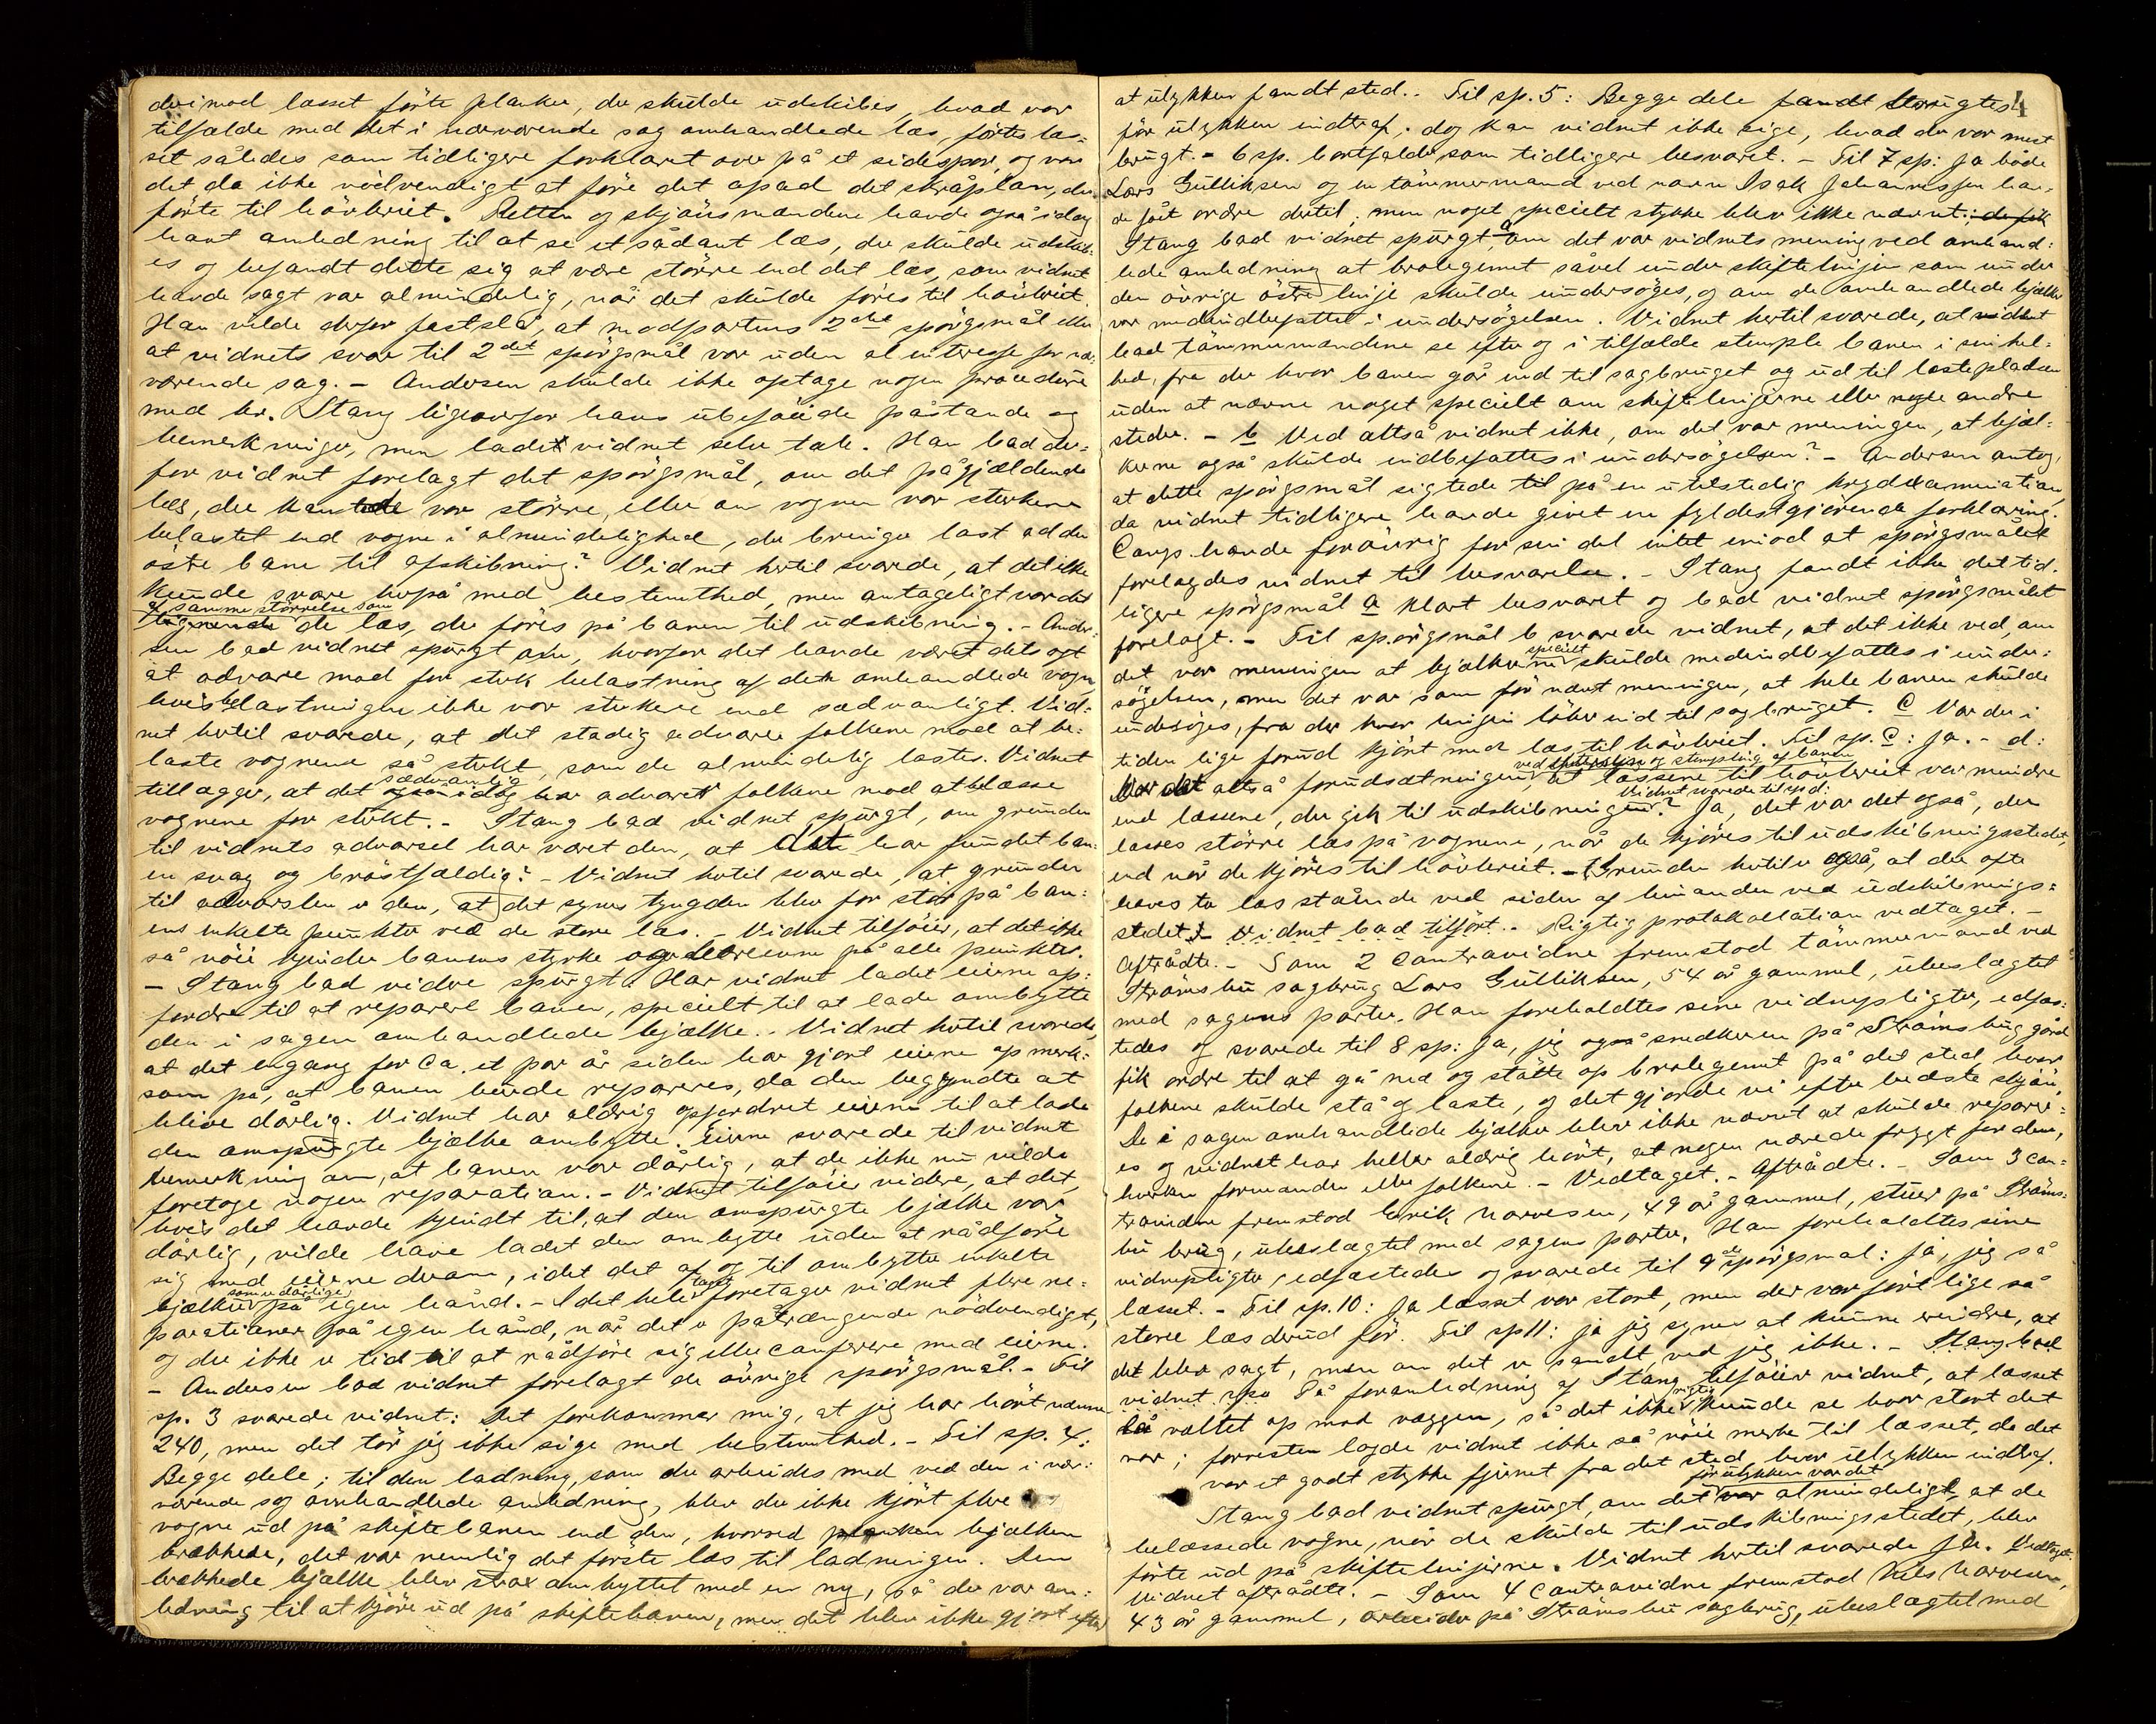 derimod læsset förte planker, der skulde udskibes, hvad var
tilfælde med det i nærværende sag omhandlede læs, förtes læs-
set således som tidligere forklaret over på et sidespor, og var
det da ikke nödvendigt at före det opad det skråplan, der
förte til hövleriet. Retten og skjönsmændene havde også idag
havt anledning til at se et sådant læs, der skulde udskib-
es og befandt dette sig at være större end det læs, som vidnet
havde sagt var almindelig, når det skulde föres til hövleriet.
Han vilde derfor fastslå, at modpartens 2det spörgsmål eller
at vidnets svar til 2det spörgsmål var uden al interesse for nær-
værende sag. - Andersen skulde ikke optage nogen procedure
med hr. Stang ligeoverfor hans ubeföiede påstande og
bemerkninger, men lade vidnet selv tale. Han bad der-
for vidnet forelagt det spörgsmål, om det pågjældende
læs, der kantede var större, eller om vognen var sterkere
belastet end vogne i almindelighed, der bringer last ad den
östre bane til afskibning? Vidnet hertil svarede, at det ikke
kunde svare herpå med bestemthed, men antageligt var det
af samme störrelse som
lignende de læs, der föres på banen til udskibning. - Ander-
sen bad vidnet spurgt om, hvorfor det havde været dets agt
at advare mod for sterk belastning af den omhandlede vogn,
hvis belastningen ikke var sterkere end sædvanligt. Vid-
net hertil svarede, at det stadig advarer folkene mod at be-
laste vognene så sterkt, som de almindelig lastes. Vidnet
sædvanlig
tillægger, at det også idag har advaret folkene mod at belæsse
vognene for sterkt. - Stang bad vidnet spurgt, om grunden
til vidnets advarsel har været den, at det har fundet ban-
en svag og bröstfældig? - Vidnet hertil svarede, at grunden
til advarslen er den, at det synes tyngden blev for stor på ban-
ens enkelte punkter ved de store læs. - Vidnet tilföier, at det ikke
så nöie kjender banens styrke og bæreevne på alle punkter.
- Stang bad vidne spurgt: Har vidnet ladet eierne op-
fordre til at reparere banen, specielt til at lade ombytte
den i sagen omhandlede bjælke. - Vidnet hertil svarede,
at det engang for ca. et par år siden har gjort eierne opmerk-
som på, at banen burde repareres, da den begyndte at
blive dårlig. Vidnet har aldrig opfordret eierne til at lade
den omspurgte bjælke ombytte. Eierne svarede til vidnets
bemerkning om, at banen var dårlig, at de ikke nu vilde
foretage nogen reparation. - Vidnet tilföier videre, at det,
hvis det havde kjendt til, at den omspurgte bjælke var
dårlig, vilde have ladet den ombytte uden at rådföre
sig med eierne derom, idet det af og til ombytter enkelte
som er dårlige
bjælker på egen hånd. - I det hele taget foretager vidnet flere re-
parationer på egen hånd, når det er påtrængende nödvendigt,
og der ikke er tid til at rådföre sig eller conferere med eierne.
- Andersen bad vidnet forelagt de övrige spörgsmål. - Til
sp. 3 svarede vidnet: Det forekommer mig, at jeg har hört nævne
240, men det tör jeg ikke sige med bestemthed. - Til sp. 4:
Begge dele; til den ladning, som der arbeides med ved den i nær-
værende sag omhandlede anledning, blev der ikke kjört flere
vogne ud på skiftebanen end den, hvorved bjælken
brækkede, det var nemlig det förste læs til ladningen. Den
brækkede bjælke blev strax ombyttet med en ny, så der var an-
ledning til at kjöre ud på skiftebanen, men det blev ikke gjort efter
4
at ulykken fandt sted. - Til sp. 5: Begge dele brugtes
för ulykken indtraf, dog kan vidnet ikke sige, hvad der var mest
brugt. - 6 sp. bortfalder som tidligere besvaret. - Til 7 sp: Ja både
Lars Gulliksen og en tömmermand ved navn Isak Johannessen hav-
de fået ordre dertil, men noget specielt stykke blev ikke nævnt; de fik
Stang bad vidnet spurgt, a om det var vidnets mening ved omhand-
lede anledning at brolegemet såvel under skiftelinjen som under
den övrige östre linje skulde undersöges, og om de omhandlede bjælker
var medindbefattet i undersögelsen. Vidnet hertil svarede, at vidnet
bad tömmermændene se efter og i tilfælde stemple banen i sin hel-
hed, fra der hvor banen går ind til sagbruget og ud til lastepladsen
uden at nævne noget specielt om skiftelinjerne eller nogle andre
steder. - b Ved altså vidnet ikke, om det var meningen, at bjæl-
kerne også skulde indbefattes i undersögelsen? - Andersen antog,
at dette spörgsmål sigtede til på en utilstedig krydexamination,
da vidnet tidligere havde givet en fyldestgjörende forklaring.
Comp. havde forövrig for sin del intet imod at spörgsmålet
forelagdes vidnet til besvarelse. - Stang fandt ikke det tid-
ligere spörgsmål a klart besvaret og bad vidnet spörgsmålet
forelagt. - Til spörgsmål b svarede vidnet, at det ikke ved, om
specielt
det var meningen at bjælkerne skulde medindbefattes i under-
sögelsen, men det var som för nævnt meningen, at hele banen skulde
undersöges, fra der hvor linjen löber ind til sagbruget. c Var der i
tiden lige forud kjört med læs til hövleriet. Til sp. c: Ja. - d:
ved undersögelse og stempling af banen
Var det altså forudsætningen, at læssene til hövleriet var mindre
Vidnet svarede til sp d:
end læssene, der gik til udskibningen? Ja, det var det også, der
læsses större læs på vognene, når de kjöres til udskibningsstedet,
end når de kjöres til hövleriet. - Grunden hertil er også, at der ofte
haves to læs stående ved siden af hinanden ved udskibnings-
stedet. - Vidnet bad tilfört. - Rigtig protokollation vedtaget. -
Aftrådte. - Som 2 Contravidne fremstod tömmermand ved
Strömsbu sagbrug Lars Gulliksen, 54 år gammel, ubeslægtet
med sagens parter. Han foreholdtes sine vidnepligter, edfæs-
tedes og svarede til 8 sp: Ja, jeg også snedkeren på Strömsbugård
fik ordre til at gå ned og stötte op brolegemet på det sted, hvor
folkene skulde stå og laste, og det gjorde vi efter bedste skjön.
De i sagen omhandlede bjælker blev ikke nævnt at skulde reparer-
es og vidnet har heller aldrig hört, at nogen nærede frygt for dem,
hverken formanden eller folkene. - Vedtaget. - Aftrådte. - Som 3 con-
travidne fremstod Erik Narvesen, 49 år gammel, stuer på Ströms-
bu brug, ubeslægtet med sagens parter. Han foreholdtes sine
vidnepligter, edfæstedes og svarede til 9de spörgsmål: Ja, jeg så
læsset. - Til sp. 10: Ja læsset var stort, men der var fört lige så
store læs derud för. Til sp 11: ja jeg synes at kunne erindre, at
det blev sagt, men om det er sandt, ved jeg ikke. - Stang bad
vidnet På foranledning af Stang tilföier vidnet, at læsset
rigtig
lå væltet op mod væggen, så det ikke kunde se hvor stort det
var; forresten lagde vidnet ikke så nöie merke til læsset, da det
var et godt stykke fjernet fra det sted, hvor ulykken indtraf.
för ulykken var det
Stang bad vidnet spurgt, om det var almindeligt, at de
belæssede vogne, når de skulde til udskibningsstedet, blev
förte ud på skiftelinjerne. Vidnet hertil svarede Ja. Vedtaget.
Vidnet aftrådte. - Som 4 Contravidne fremstod Nils Narvesen,
43 år gammel, arbeider på Strömsbu sagbrug, ubeslægtet med